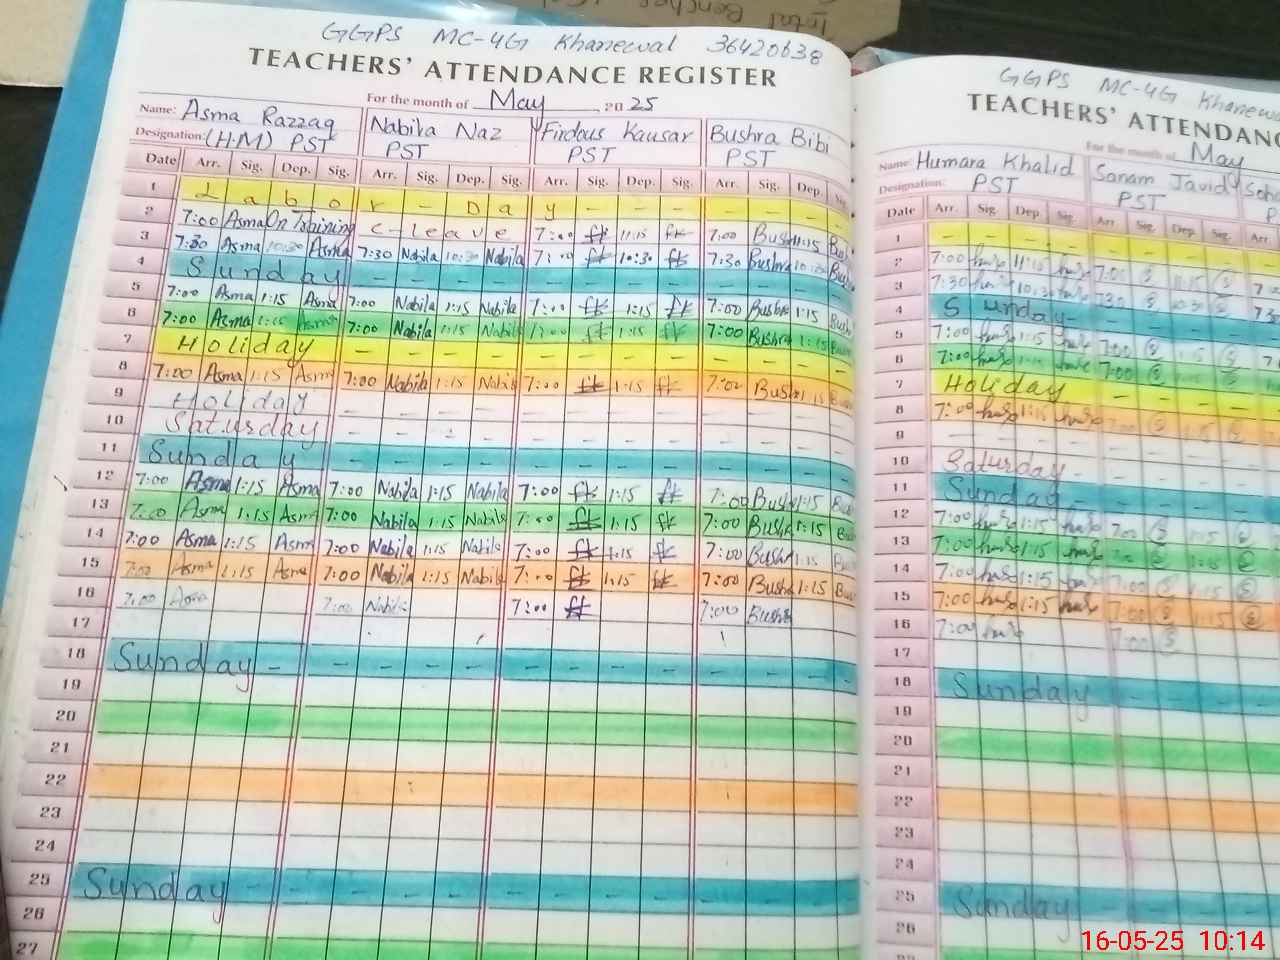 Total Benches
GGPS MC-4G Khanewal 36420638
TEACHERS' ATTENDANCE REGISTER
For the month of May 2025
Name: Asma Razzaq Nabila Naz Firdous Kausar Bushra Bibi
Designation: (H.M) PST PST PST PST
Date Arr. Sig. Dep. Sig. Arr. Sig. Dep. Sig. Arr. Sig. Dep. Sig. Arr. Sig. Dep.
1 Labor - Day - - - - - -
2 7:00 Asma On Training C-leave 7:00 fk 11:15 fk 7:00 Bush 11:15 Bus
3 7:30 Asma 10:30 Asma 7:30 Nabila 10:30 Nabila 7:00 fk 10:30 fk 7:30 Bushra 10:30 Bus
4 Sunday - - - - - - - - - - - -
5 7:00 Asma 1:15 Asma 7:00 Nabila 1:15 Nabila 7:00 fk 1:15 fk 7:00 Bushra 1:15 Bus
6 7:00 Asma 1:15 Asma 7:00 Nabila 1:15 Nabila 7:00 fk 1:15 fk 7:00 Bushra 1:15 Bus
7 Holiday - - - - - - - - - - - -
8 7:00 Asma 1:15 Asma 7:00 Nabila 1:15 Nabila 7:00 fk 1:15 fk 7:00 Bush 1:15 Bus
9 Holiday - - - - - - - - - - - -
10 Saturday - - - - - - - - - - - -
11 Sunday - - - - - - - - - - - -
12 7:00 Asma 1:15 Asma 7:00 Nabila 1:15 Nabila 7:00 fk 1:15 fk 7:00 Bush 1:15 Bus
13 7:00 Asma 1:15 Asma 7:00 Nabila 1:15 Nabila 7:00 fk 1:15 fk 7:00 Bush 1:15 Bus
14 7:00 Asma 1:15 Asma 7:00 Nabila 1:15 Nabila 7:00 fk 1:15 fk 7:00 Bush 1:15 Bus
15 7:00 Asma 1:15 Asma 7:00 Nabila 1:15 Nabila 7:00 fk 1:15 fk 7:00 Bush 1:15 Bus
16 7:00 Asma 7:00 Nabila 7:00 fk 7:00 Bushra
17
18 Sunday - - - - - - - - - - - - -
19
20
21
22
23
24
25 Sunday - - - - - - - - - - - - -
26
27
GGPS MC-4G Khanewa
TEACHERS' ATTENDANC
For the month of May
Name: Humara Khalid Sanam Javid Soba
Designation: PST PST PS
Date Arr. Sig. Dep. Sig. Arr. Sig. Dep. Sig. Arr.
1 - - - - - - - -
2 7:00 11:15 7:00 11:15
3 7:30 10:30 7:30 10:30
4 Sunday - - - - -
5 7:00 1:15 7:00 1:15
6 7:00 1:15 7:00 1:15
7 Holiday - - - -
8 7:00 1:15 7:00 1:15
9 - - - - - - - -
10 Saturday - - - - -
11 Sunday - - - - -
12 7:00 1:15 7:00 1:15
13 7:00 1:15 7:00 1:15
14 7:00 1:15 7:00 1:15
15 7:00 1:15 7:00 1:15
16 7:00 7:00
17
18 Sunday - - - -
19
20
21
22
23
24
25 Sunday - - - -
26
16-05-25 10:14